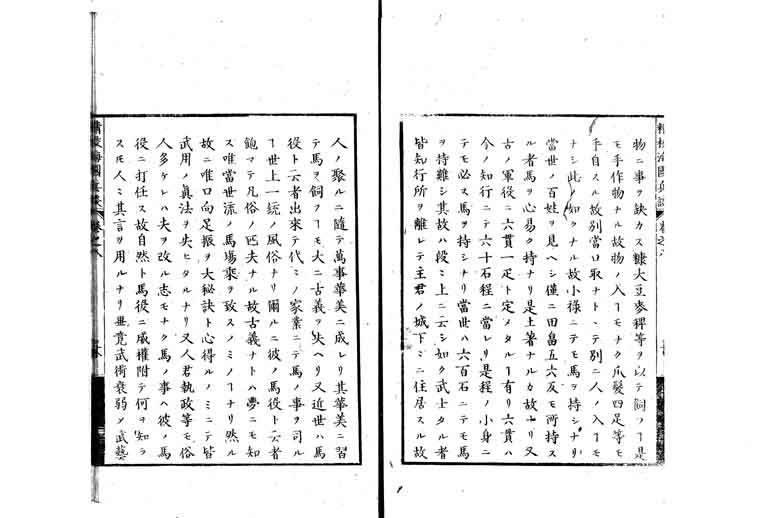 精校海國兵談 卷之八
物ニ事ヲ缺カス糠大豆麥稗等ヲ以テ飼フヿ是
モ手作物ナル故物ノ入ヿモナク爪髮四足等モ
手自スル故別當口取ナトヽテ別ニ人ノ入ヿモ
ナシ此ノ如クナル故小祿ニテモ馬ヲ持シナリ
當世ノ百姓ヲ見ヘシ僅ニ田畠五六反モ所持ス
ル者馬ヲ心易ク持ナリ是土著ナルカ故ナリ又
古ノ軍役ニ六貫一疋ト定メタルヿ有リ六貫ハ
今ノ知行ニテ六十石程ニ當レリ是程ノ小身ニ
テモ必ス馬ヲ持シナリ當世ハ六百石ニテモ馬
ヲ持難シ其故ハ段ミ上ニ云シ如ク武士タル者
皆知行所ヲ離レテ主君ノ城下ミニ住居スル故
人ノ聚ルニ隨テ萬事華美ニ成レリ其華美ニ習
テ馬ヲ飼フヿモ大ニ古義ヲ失ヘリ又近世ハ馬
役ト云者出來テ代ミノ家業ニテ馬ノ事ヲ司ル
ヿ世上一統ノ風俗ナリ爾ルニ彼ノ馬役ト云者
飽マテ凡俗ノ匹夫ナル故古義ナトハ夢ニモ知
ス唯當世流ノ馬場乘ヲ致スノミノヿナリ然ル
故ニ唯口向足振ヲ大秘訣ト心得ルノミニテ皆
武用ノ眞法ヲ失ヒタルナリ又人君執政等モ俗
人多ケレハ夫ヲ改ル志モナク馬ノ事ハ彼ノ馬
役ニ打任ス故自然ト馬役ニ威權附テ何ヲ知ラ
スモ人ミ其言ヲ用ルナリ畢竟武術衰弱〆武藝
精校海國兵談 卷之八